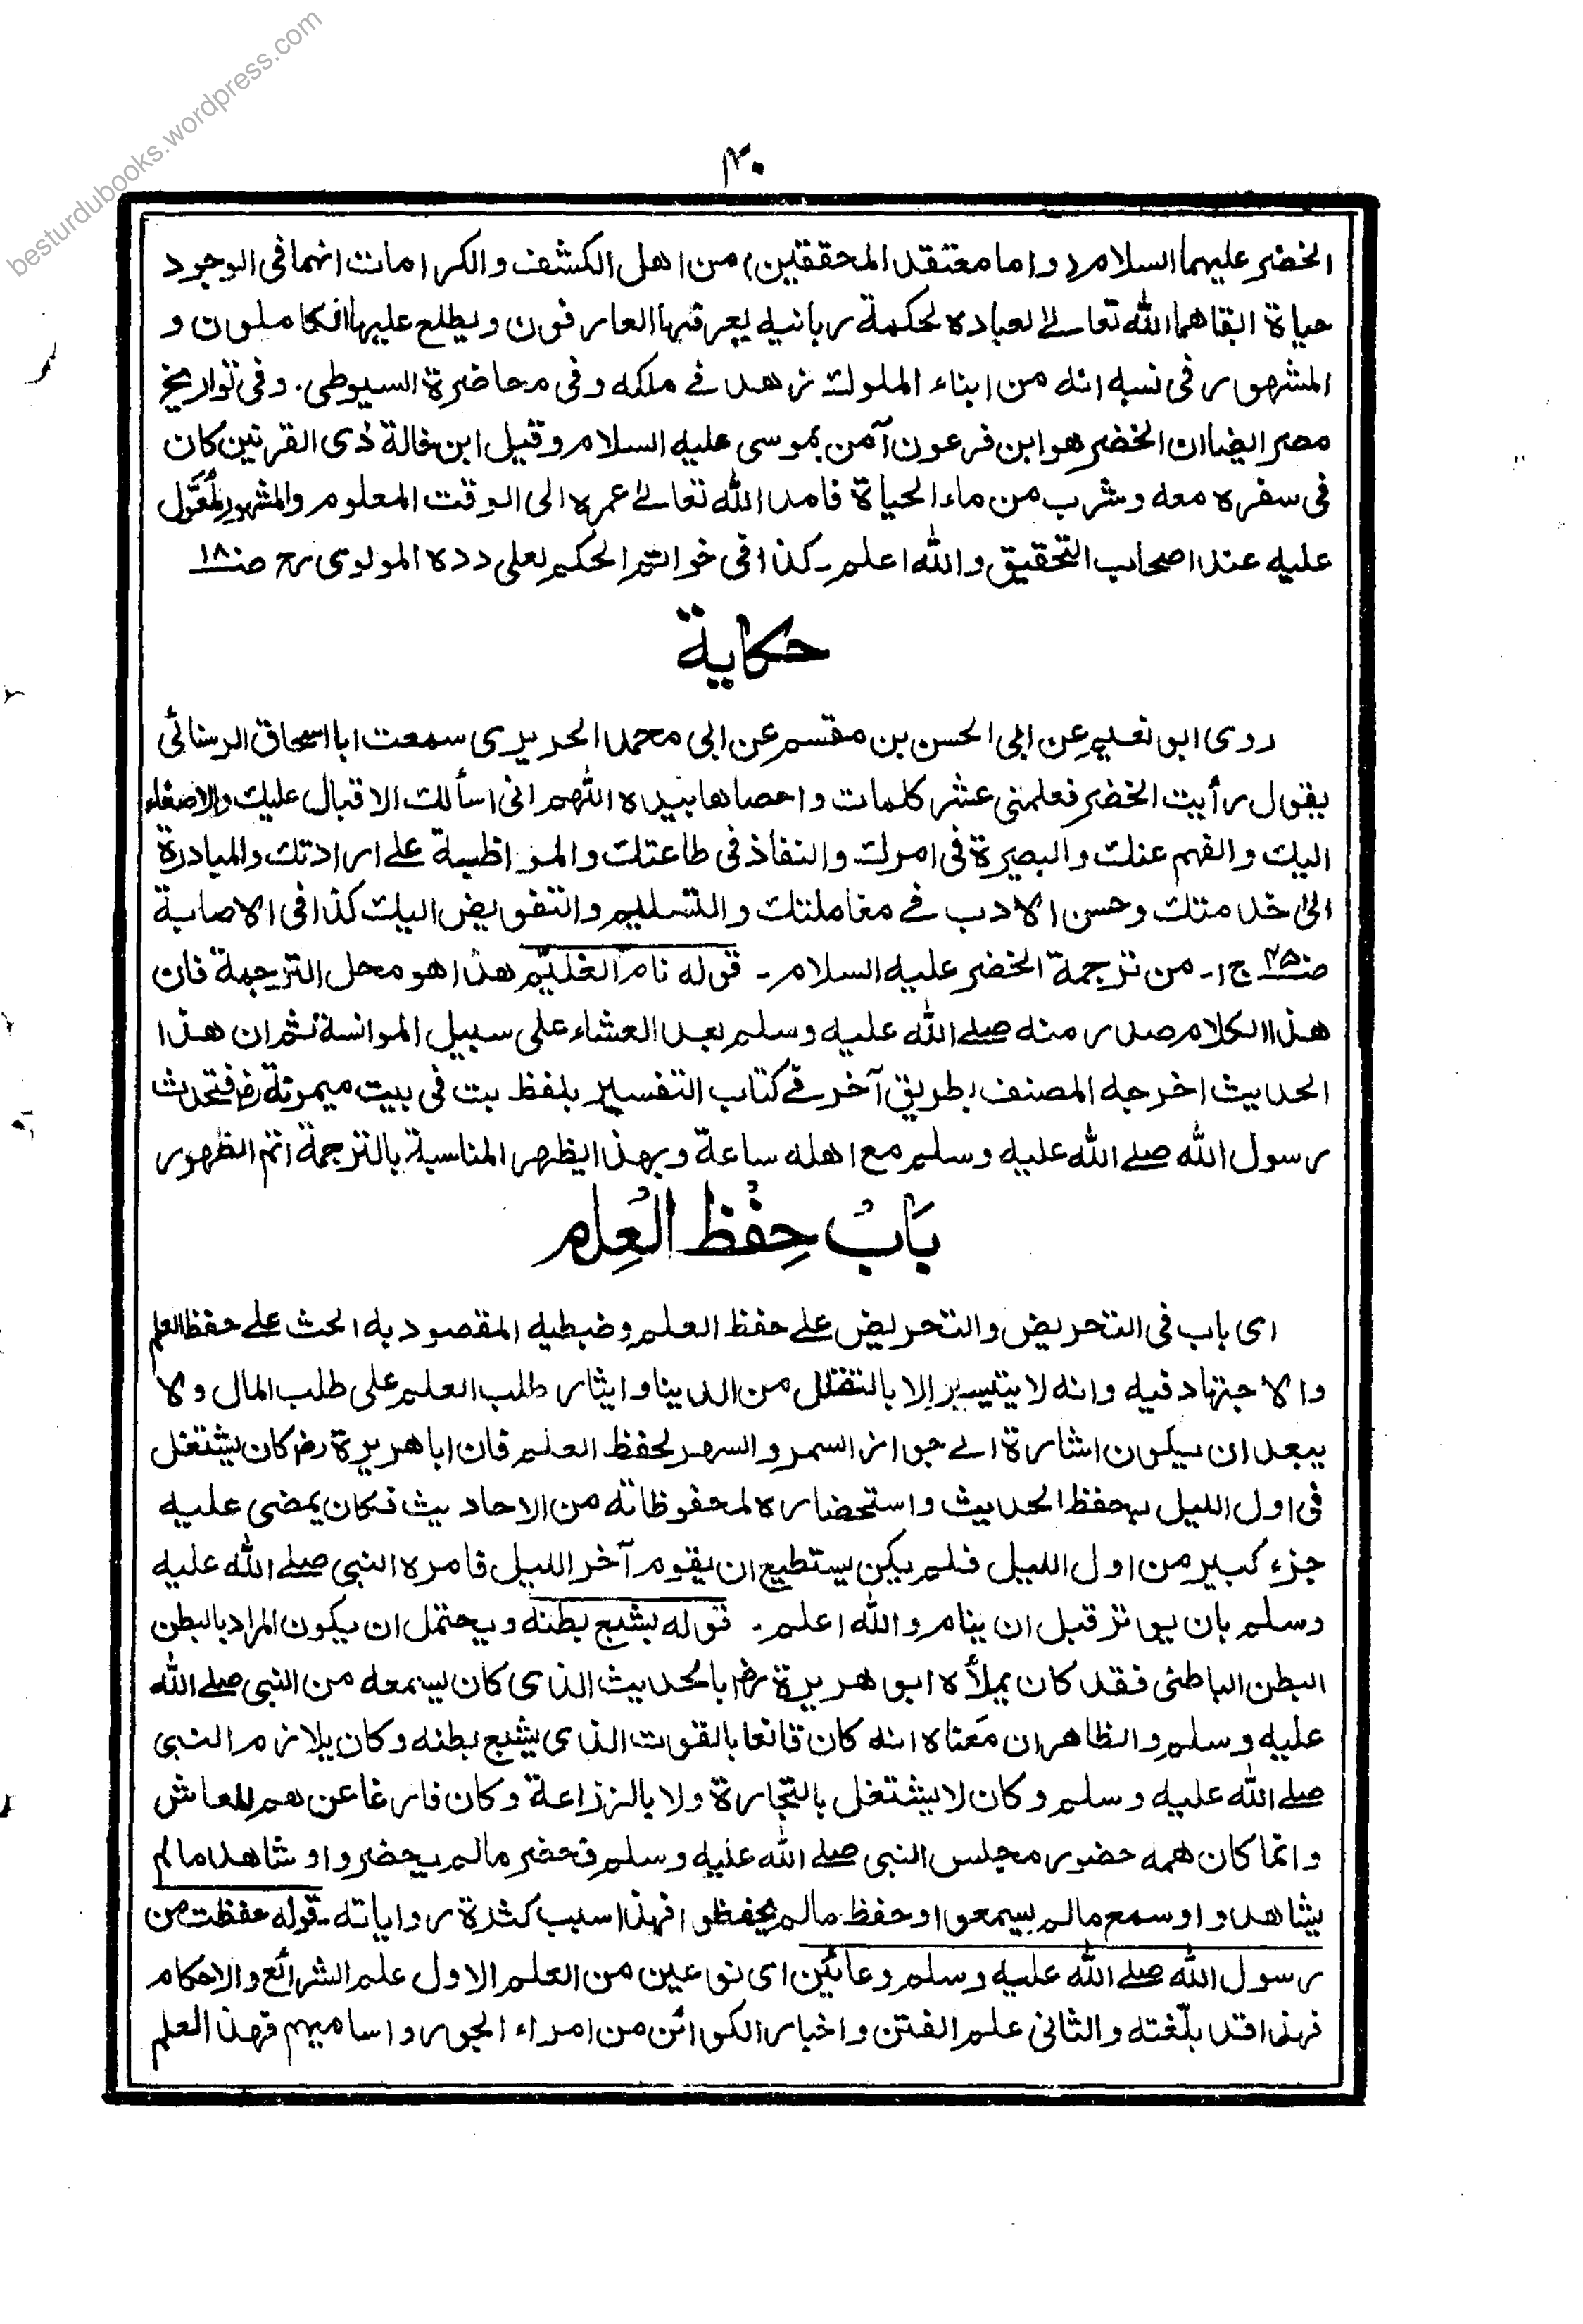 besturdubooks.wordpress.com
۴۰
الخضر علیهما السلام (واما معتقد المحققین) من اهل الکشف والکرامات انهما فی الوجود
حیاة ابقاهما الله تعالےٰ لعباده لحکمة ربانیه یعرفها العارفون ویطلع علیها الکاملون و
المشهور فی نسبه انه من ابناء الملوك زهد فے ملکه وفی محاضرة السیوطی. وفی تواریخ
مصر ایضا ان الخضر هو ابن فرعون آمن بموسی علیه السلام وقیل ابن خالة ذی القرنین کان
فی سفره معه وشرب من ماء الحیاة فامد الله تعالےٰ عمره الی الوقت المعلوم والمشهور المُعَوَّل
علیه عند اصحاب التحقیق والله اعلم۔ کذا فی خواتم الحکم لعلی دده المولوی رح صـ۱۸
حکایة
روی ابو نعیم عن ابی الحسن بن مقسم عن ابی محمد الحریری سمعت ابا اسحاق الرستائی
یقول رأیت الخضر فعلمنی عشر کلمات واحصاها بیده اللهم انی اسألك الاقبال علیك والاصغاء
الیك والفهم عنك والبصیرة فی امرك والنفاذ فی طاعتك والمواظبة علے ارادتك والمبادرة
الیٰ خدمتك وحسن الادب فے معاملتك والتسلیم والتفویض الیك کذا فی الاصابة
صـ ج۱۔ من ترجمة الخضر علیه السلام۔ قوله نام الغلیّم هذا هو محل الترجمة فان
هذا الکلام صدر منه صلے الله علیه وسلم بعد العشاء علی سبیل الموانسة ثم ان هذا
الحدیث اخرجه المصنف بطریق آخر فے کتاب التفسیر بلفظ بت فی بیت میمونة رض فتحدث
رسول الله صلے الله علیه وسلم مع اهله ساعة وبهذا یظهر المناسبة بالترجمة اتم الظهور
بَابُ حِفْظ العِلم
ای باب فی التحریض والتحریض علے حفظ العلم وضبطیه المقصود به الحث علے حفظ العلم
والاجتهاد فیه وانه لا یتیسر الا بالتقلل من الدینا وایثار طلب العلم علی طلب المال ولا
یبعد ان یکون اشارة الے جواز السمر والسهر لحفظ العلم فان ابا هریرة رض کان یشتغل
فی اول اللیل بحفظ الحدیث واستحضاره لمحفوظاته من الاحادیث فکان یمضی علیه
جزء کبیر من اول اللیل فلم یکن یستطیع ان یقوم آخر اللیل فامره النبی صلے الله علیه
وسلم بان یوتر قبل ان ینام والله اعلم۔ قوله بشبع بطنه ویحتمل ان یکون المراد بالبطن
البطن الباطنی فقد کان یملأه ابو هریرة رض بالحدیث الذی کان یسمعه من النبی صلے الله
علیه وسلم والظاهر ان معناه انه کان قانعا بالقوت الذی یشبع بطنه وکان یلازم النبی
صلے الله علیه وسلم وکان لا یشتغل بالتجارة ولا بالزراعة وکان فارغا عن هم المعاش
وانما کان همه حضور مجلس النبی صلے الله علیه وسلم فحضر مالم یحضروا وشاهد مالم
یشاهدوا وسمع مالم یسمعوا وحفظ مالم یحفظوا فهذا سبب کثرة روایاته۔ قوله حفظت من
رسول الله صلے الله علیه وسلم وعائین ای نوعین من العلم الاول علم الشرائع والاحکام
فهذا قد بلّغته والثانی علم الفتن واخبار الکوائن من امراء الجور واسامیهم فهذا العلم